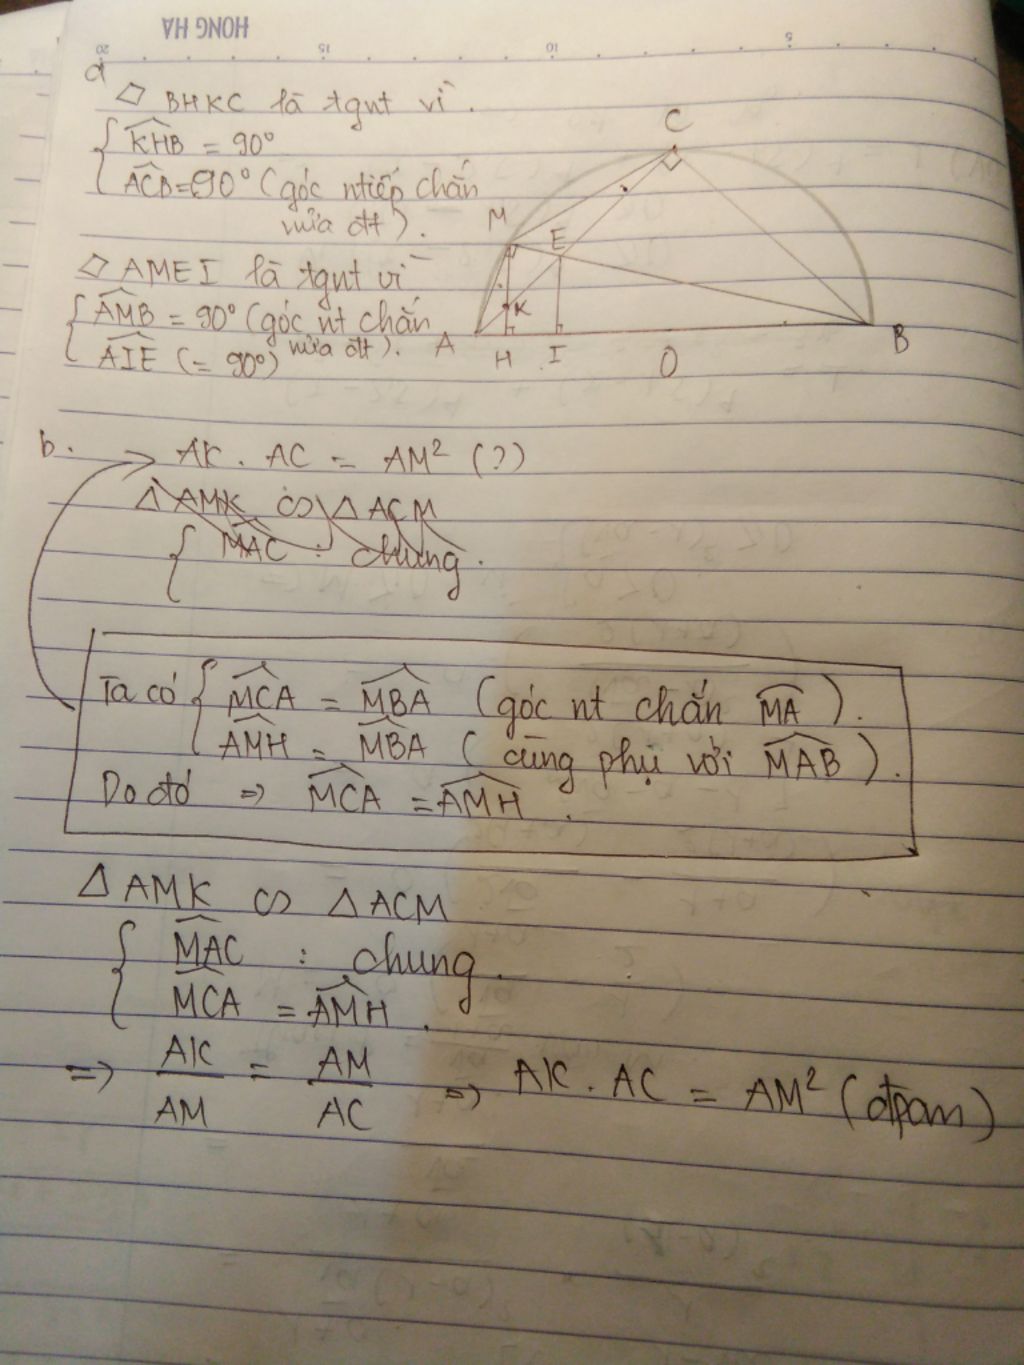 HONG HA
20 15 10 5
a
◇ BHKC là tgnt vì.
{ \widehat{KHB} = 90°
\widehat{ACB} = 90° (góc ntiếp chắn
nửa đtt).
◇ AMEI là tgnt vì
{ \widehat{AMB} = 90° (góc nt chắn
nửa đtt).
\widehat{AIE} (= 90°)
C
M
E
K
A
H
I
O
B
b. → AK . AC = AM² (?)
Δ AMK ∽ Δ ACM
{ \widehat{MAC} : chung.
Ta có { \widehat{MCA} = \widehat{MBA} (góc nt chắn \widehat{MA}).
\widehat{AMH} = \widehat{MBA} (cùng phụ với \widehat{MAB}).
Do đó ⇒ \widehat{MCA} = \widehat{AMH}.
Δ AMK ∽ Δ ACM
{ \widehat{MAC} : chung.
\widehat{MCA} = \widehat{AMH}.
⇒ AK/AM = AM/AC ⇒ AK . AC = AM² (đpcm)